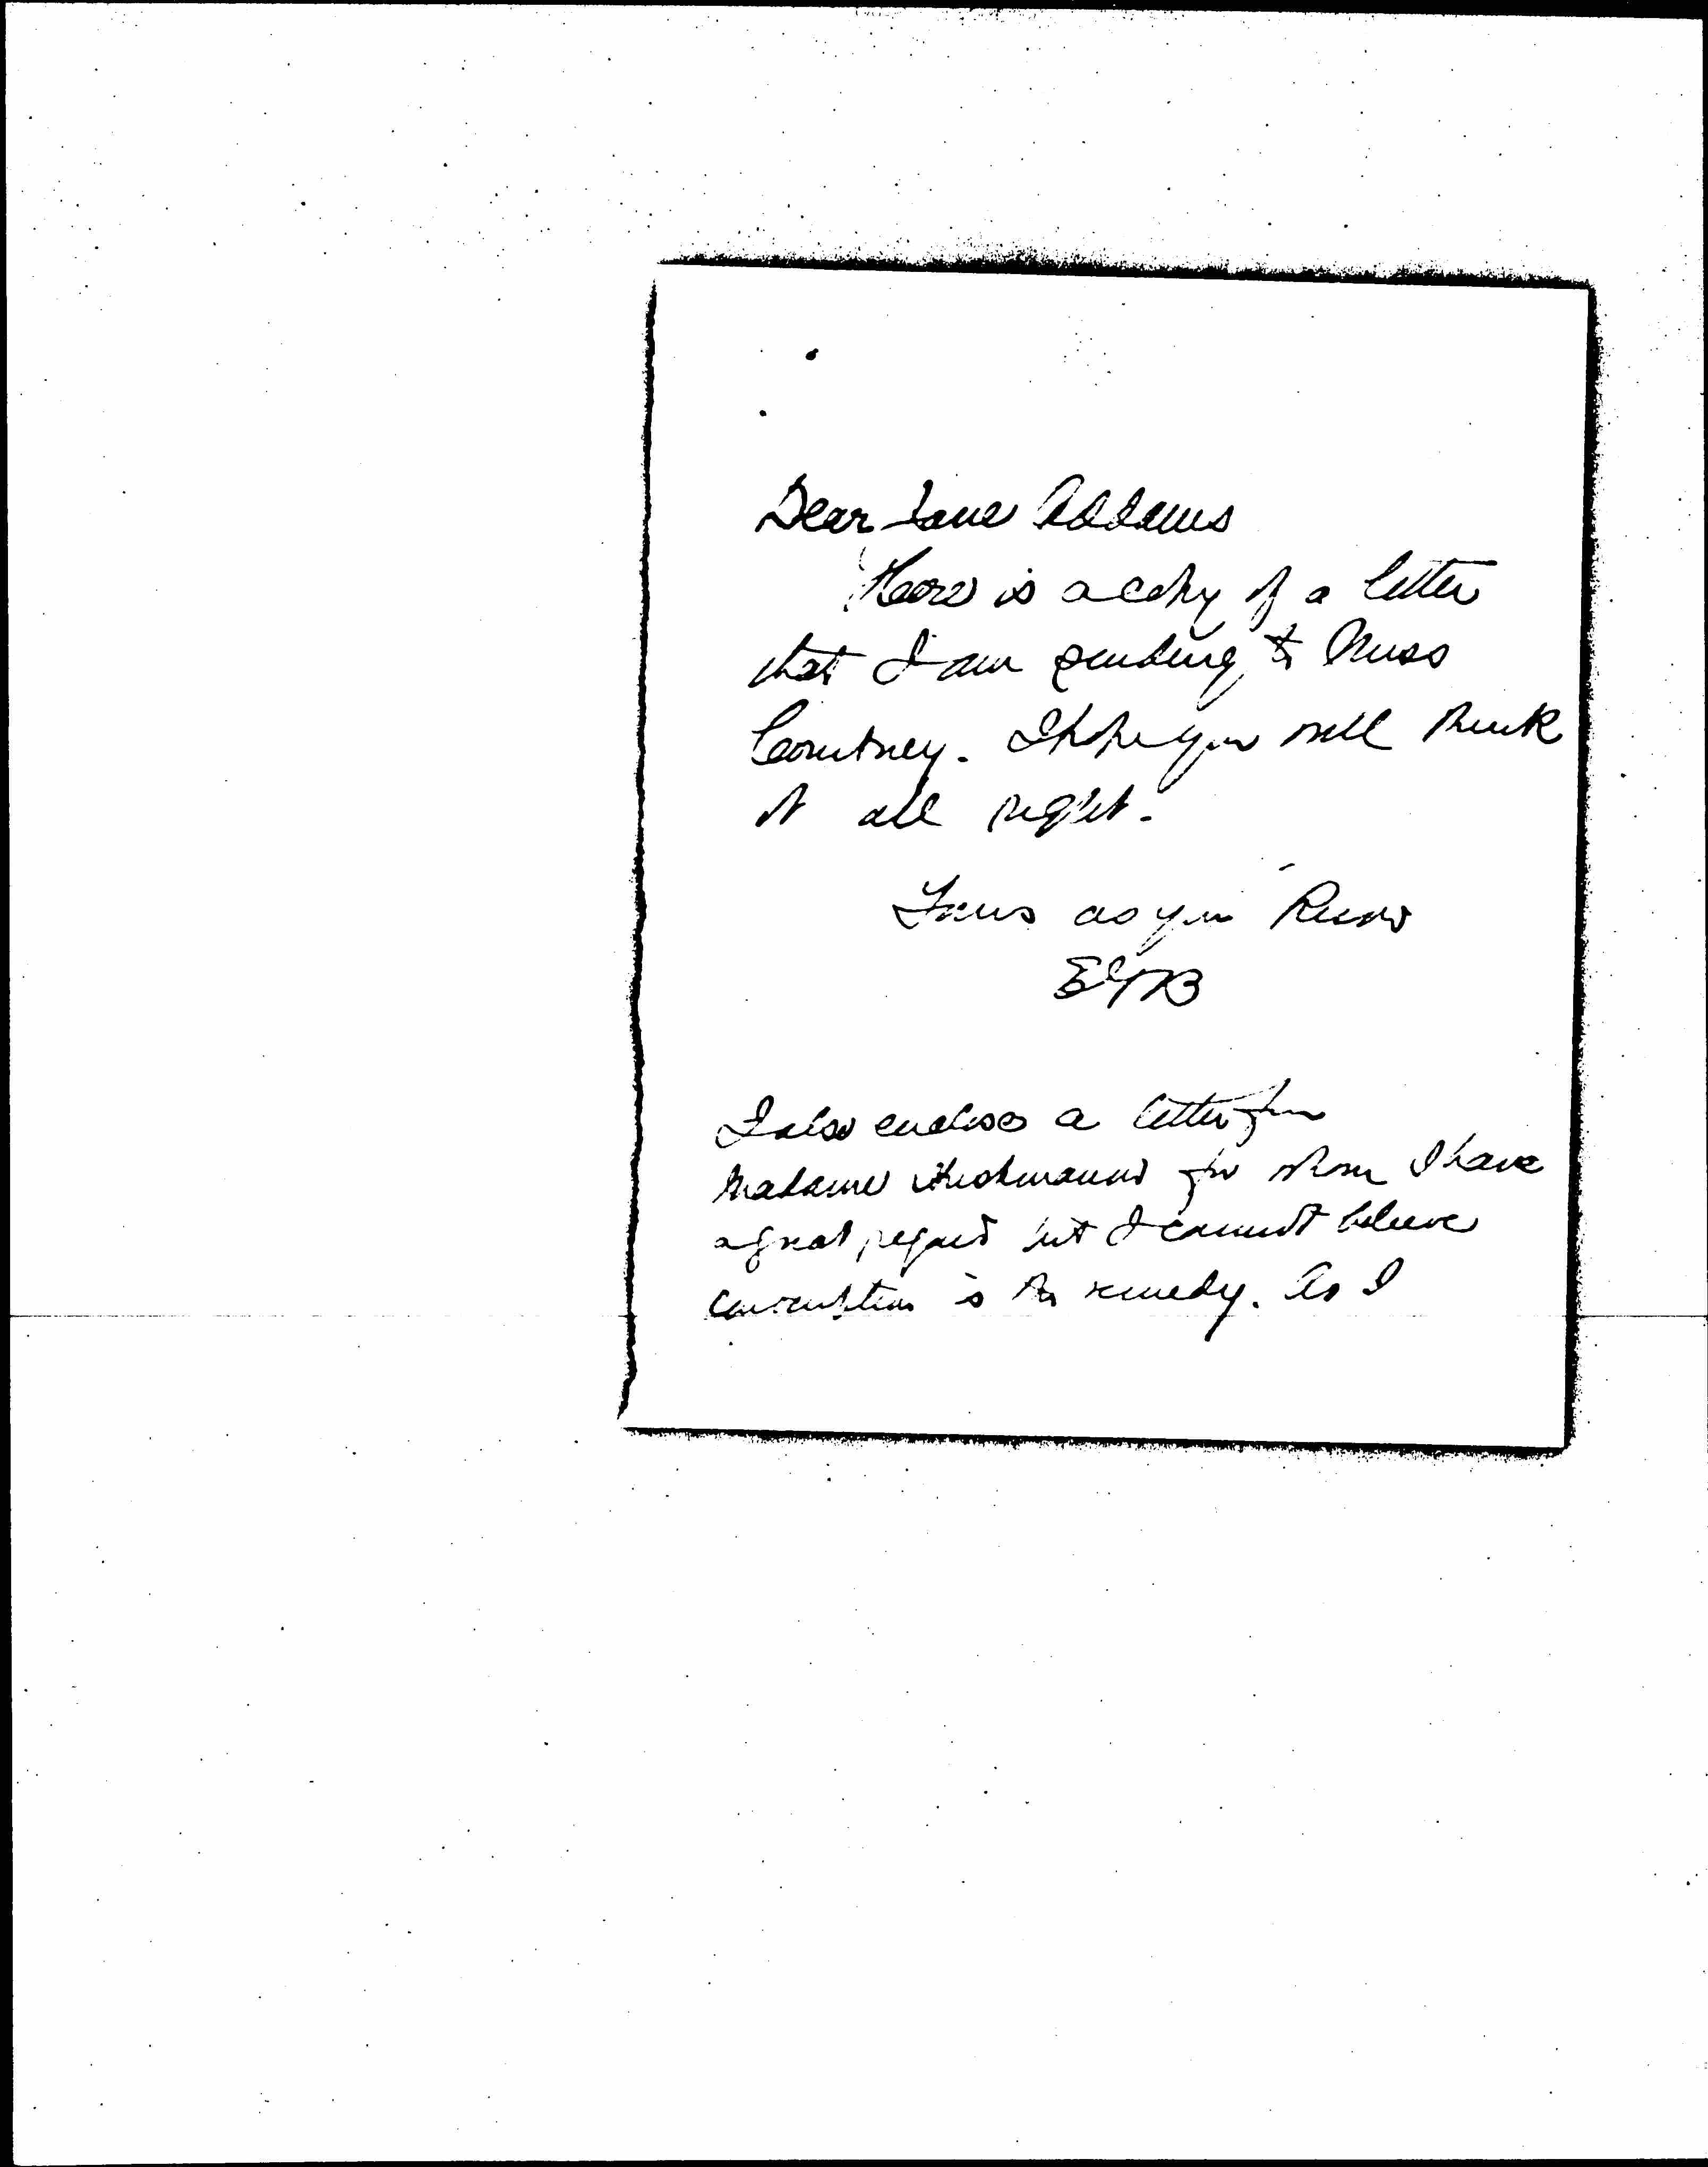 Dear Jane Addams
Here is a copy of a letter
that I am sending to Miss
Courtney. I hope you will think
it all right.
Yours as you know
EGB
I also enclose a letter from
Madame for whom I have
a great regard but I cannot believe
conscription is the remedy. As I